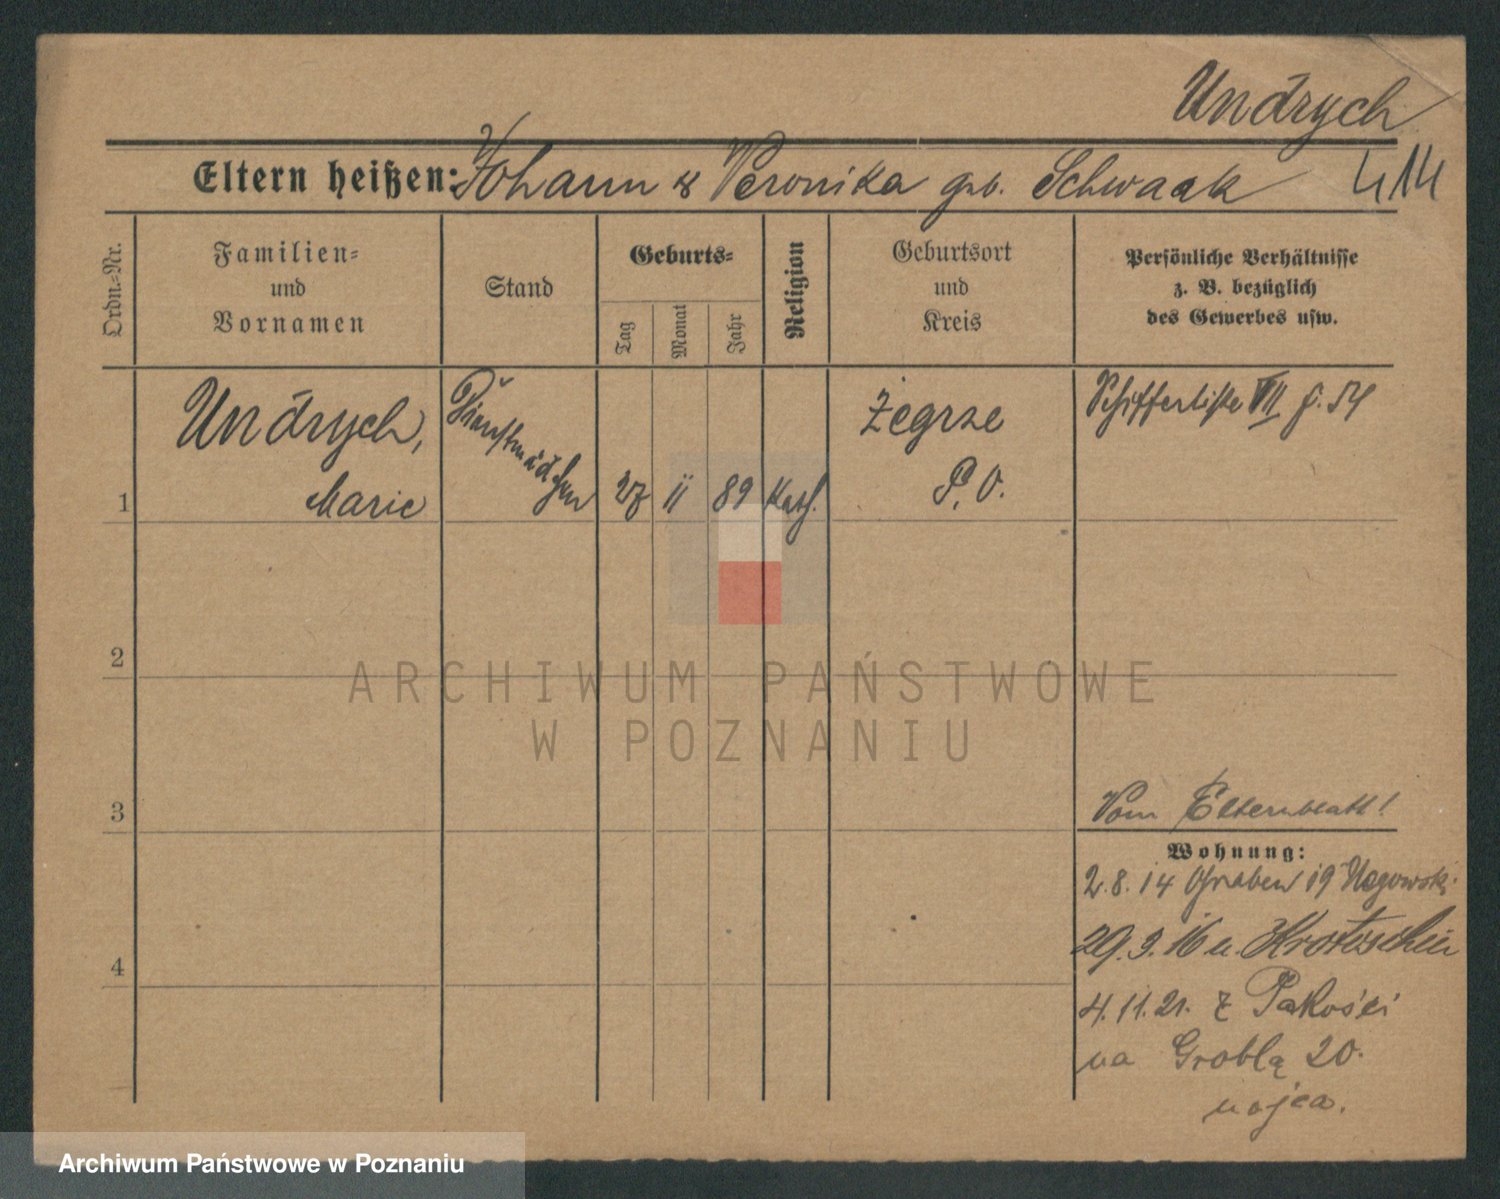 Undrych
Eltern heißen: Johann & Veronika geb. Schwaak
414
Ordn.-Nr.
Familien-
und
Vornamen
Stand
Geburts-
Tag
Monat
Jahr
Religion
Geburtsort
und
Kreis
Persönliche Verhältnisse
z. B. bezüglich
des Gewerbes usw.
1
Undrych,
Marie
Dienstmädchen
II
89
Kath.
Żegrze
P. O.
VII
54
ARCHIWUM PAŃSTWOWE
W POZNANIU
2
3
4
Vom Elternblatt!
Wohnung:
2.8.14 Graben 19
29.9.16 n. Krotoschin
4.11.21. z Pakości
na Groblą 20.
ojca.
Archiwum Państwowe w Poznaniu